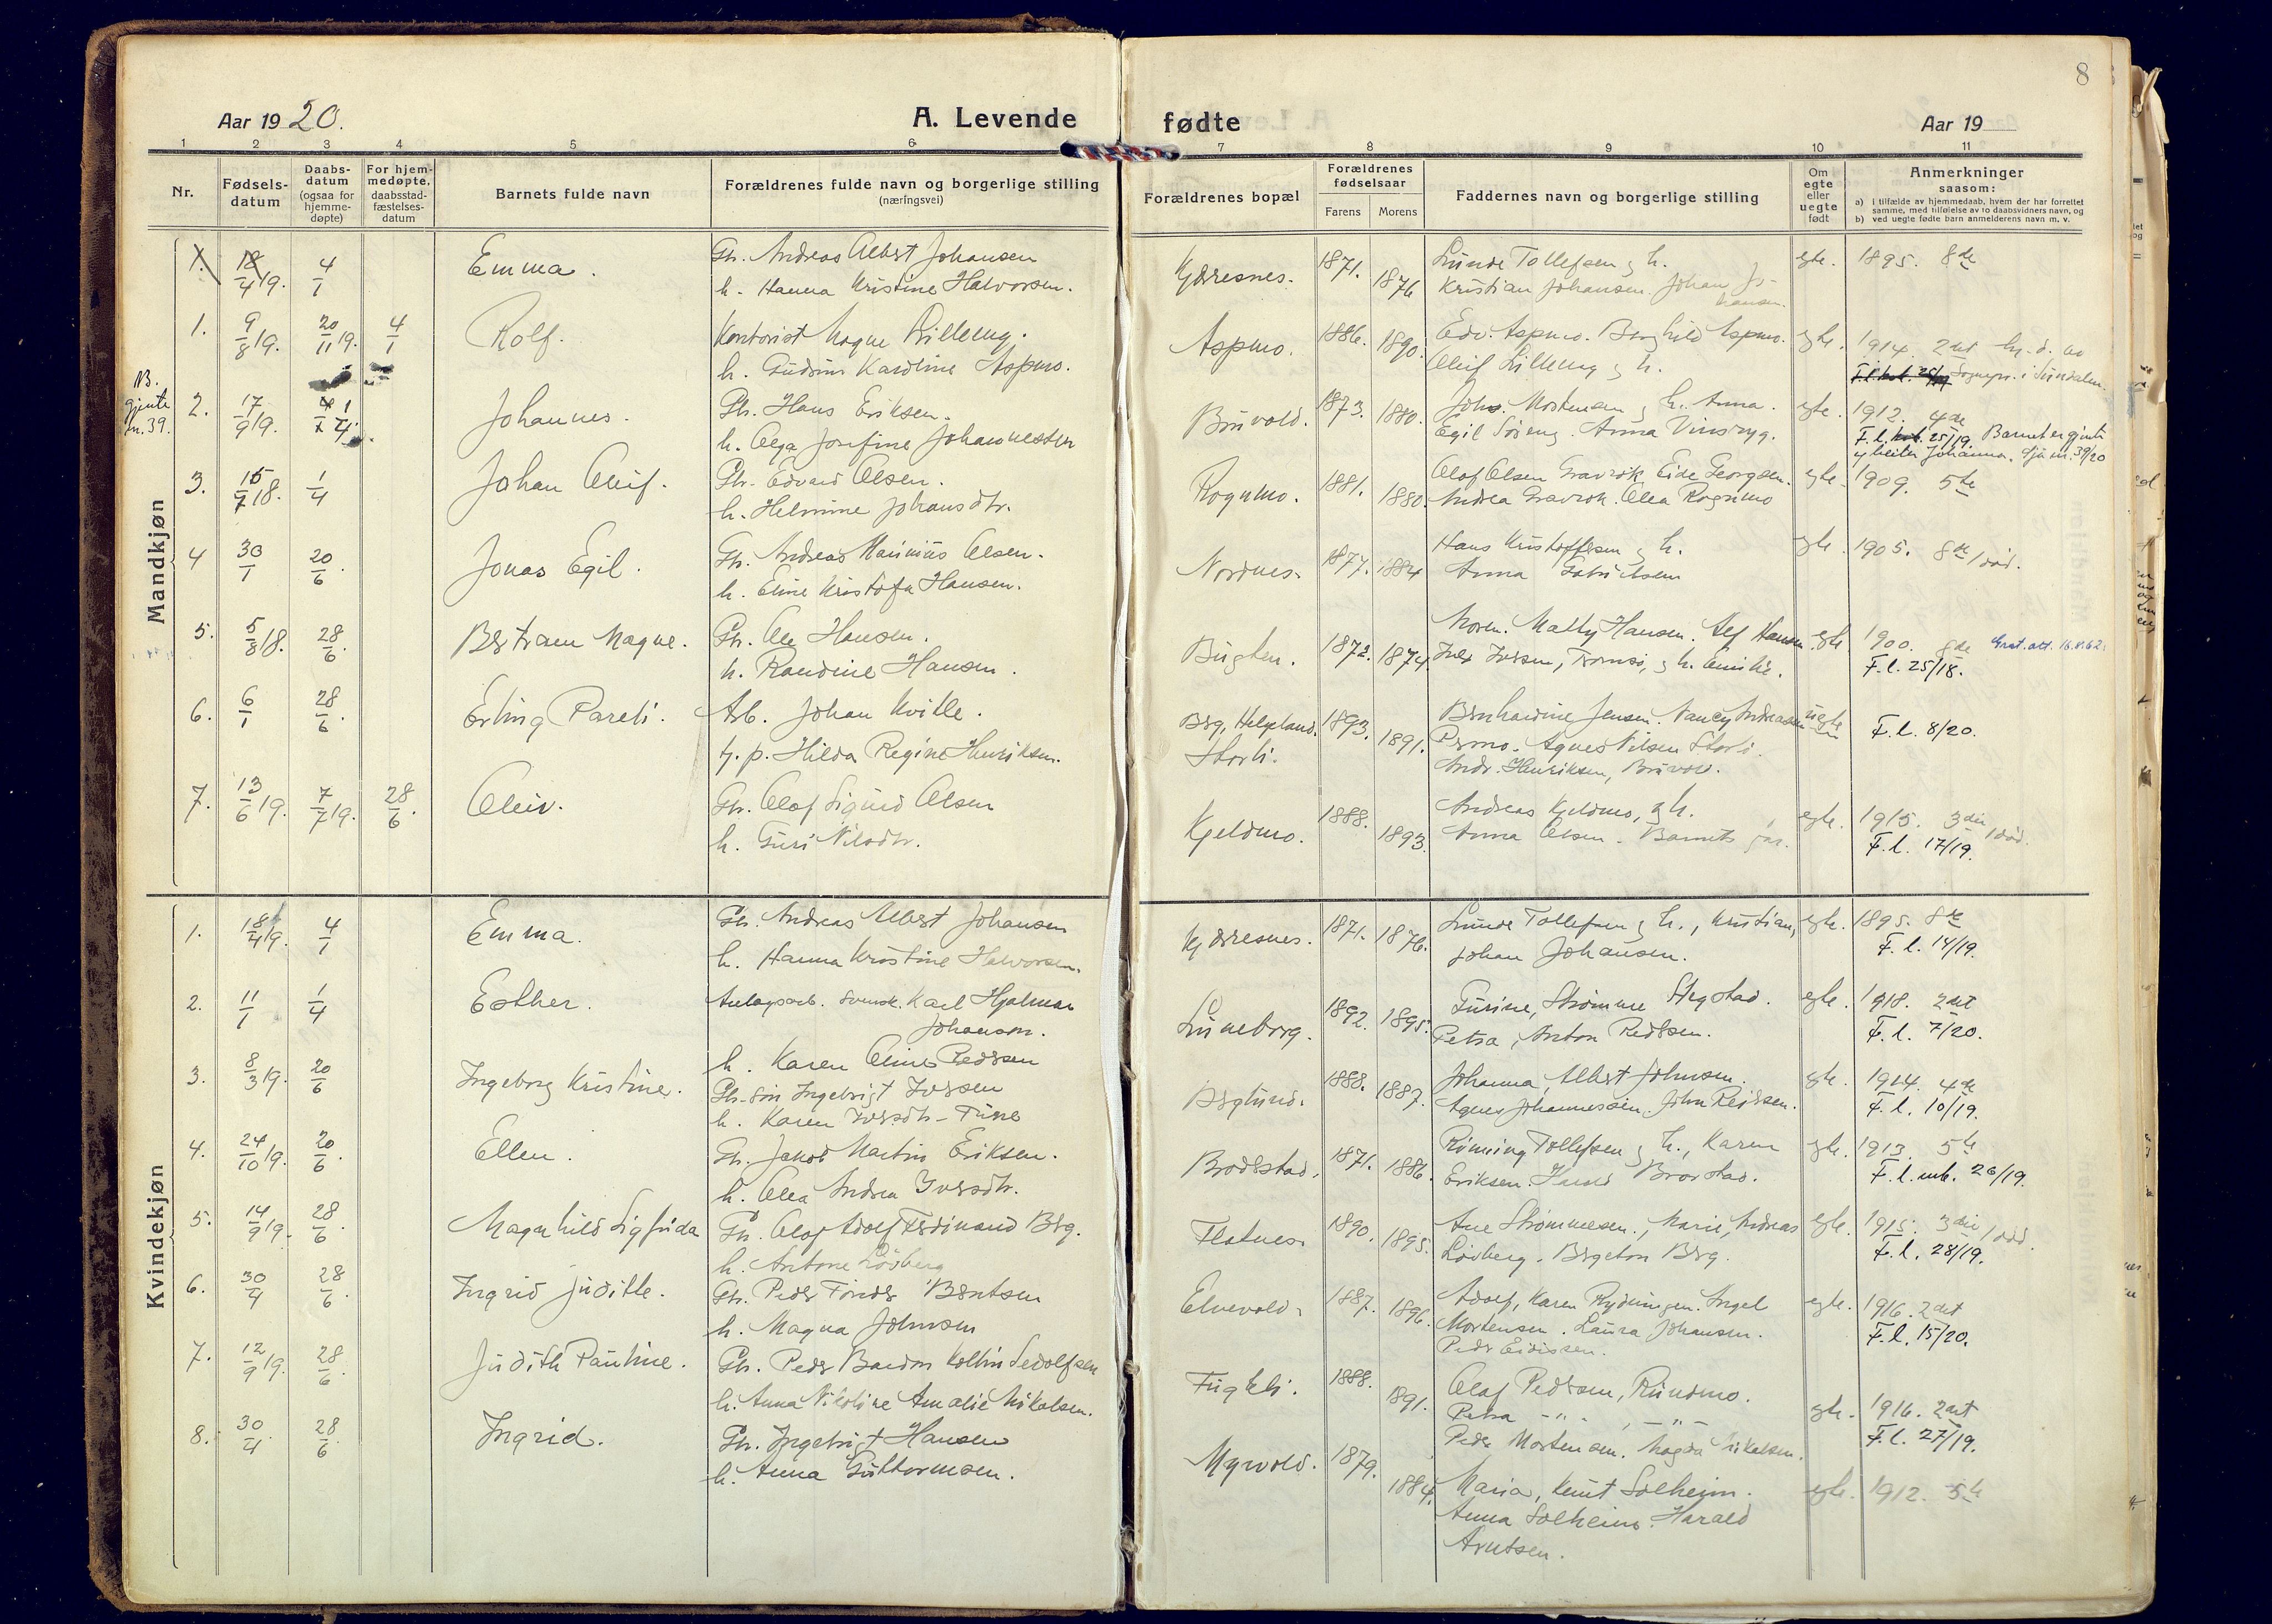 8
Aar 1920.
A. Levende fødte
Aar 19
1 2 3 4 5 6 7 8 9 10 11
Nr.
Fødsels-
datum
Daabs-
datum
(ogsaa for
hjemme-
døpte)
For hjem-
medøpte,
daabsstad-
fæstelses-
datum
Barnets fulde navn
Forældrenes fulde navn og borgerlige stilling
(næringsvei)
Forældrenes bopæl
Forældrenes
fødselsaar
Farens Morens
Faddernes navn og borgerlige stilling
Om
egte
eller
uegte
født
Anmerkninger
saasom:
a) i tilfælde av hjemmedaab, hvem der har forrettet
samme, med tilføielse av to daabsvidners navn, og
b) ved uegte fødte barn anmelderens navn m. v.
Mandkjøn
1. 18/4 19. 4/1 Emma. Gb. Andreas Albert Johansen
h. Hanna Kristine Halvorsen.
Kjærresnes. 1871. 1876 Lunde Tollefsen & h.
Kristian Johansen. Johan Jo-
hansen.
egte. 1895. 8de
1. 9/8 19. 20/11 19. 4/1 Rolf. Kontorist Magne Lilleeng.
h. Gudrun Karoline Aspmo.
Aspmo. 1886. 1890. Edv. Aspmo. Borghild Aspmo.
Oleif Lilleeng & h.
egte. 1914. 2det hj. d. av
Sognepr. i Sundalen.
NB.
gjente
nr. 39.
2. 17/9 19. 1/4 Johannes. Gb. Hans Eriksen.
h. Olga Josefine Johannessen
Bruvold. 1873. 1880. Johs. Mortensen & h. Anna.
Egil Søreng. Anna Vinstryg.
egte. 1912. 4de
F. l. 25/19. Barnet er gjente
og heiter Johanna. Sjå nr. 39/20
3. 15/7 18. 1/4 Johan Oleif. Gb. Edvard Olsen.
h. Helmine Johansdtr.
Rognmo. 1881. 1880. Olaf Olsen Gravrok. Eide Georgsen.
Andrea Gravrok. Olea Rognmo
egte. 1909. 5te
4 30/1 20/6. Jonas Egil. Gb. Andreas Marinius Olsen.
h. Eline Kristofa Hansen.
Nordnes. 1877. 1884 Hans Kristoffersen & h.
Anna Gabrielsen
egte. 1905. 8de 1 død.
5. 5/8 18. 28/6. Bertram Magne. Gb. Ole Hansen.
h. Randine Hansen.
Bugten. 1872. 1874. Moren. Malty Hansen. Alf Hansen.
Iver Iversen, Tromsø, & h. Emilie.
egte 1900. 8de
F. l. 25/18.
6. 6/1 28/6. Erling Pareli. Arb. Johan Kville.
h. p. Hilda Regine Henriksen.
Berg, Helgeland.
Storli.
1893. 1891. Bernhardine Jensen. Nancy Andreassen
Prmo. Agnes Nilsen Storli.
Andr. Henriksen, Bruvol.
uegte F. l. 8/20.
7. 13/6 19. 7/7 19. 28/6. Oleiv. Gb. Olaf Sigurd Olsen
h. Guri Nilsdtr.
Kjeldmo. 1888. 1893. Andreas Kjeldmo, & h.
Anna Olsen. Barnets far.
egte. 1915. 3die 1 død.
F. l. 17/19.
Kvindekjøn
1. 18/4 19. 4/1 Emma. Gb. Andreas Albert Johansen
h. Hanna Kristine Halvorsen.
Kjærresnes. 1871. 1876. Lunde Tollefsen & h., Kristian,
Johan Johansen.
egte. 1895. 8de
F. l. 14/19.
2. 11/1 1/4 Esther. Anlægsarb. svensk. Karl Hjalmar
Johanson.
h. Karen Oline Pedersen
Luneborg. 1892. 1895. Turine, Strømme Stegstad.
Petra, Anton Pedersen.
egte. 1918. 2det
F. l. 7/20.
3. 8/3 19. 20/6 Ingeborg Kristine. Gb. søn Ingebrigt Iversen
h. Karen Iversdtr. Ture
Berglund. 1888. 1887. Johanna, Albert Johnsen.
Agnes Johannessen. John Reiersen.
egte. 1914. 4de
F. l. 10/19.
4. 24/10 19. 20/6. Ellen. Gb. Jakob Martin Eriksen.
h. Olea Andrea Iversdtr.
Brodstad. 1871. 1886. Rinning Tollefsen & h., Karen
Eriksen. Harald Brorstad.
egte. 1913. 5te
F. l. mb. 26/19.
5. 14/9 19. 28/6. Magnhild Sigfrida Gb. Olaf Adolf Ferdinand Berg.
h. Antone Løvberg
Flatnes. 1890. 1895. Ane Strømmesen., Marie, Andreas
Løvberg. Bergeton Berg.
egte. 1915. 3die 1 død.
F. l. 28/19.
6. 30/4 28/6. Ingrid Judithe. Gb. Peder Tønder Berntsen
h. Magna Johnsen
Elvevold. 1887. 1896. Adolf, Karen Rydningen. Ingel
Mortensen. Laura Johansen.
Peder Eidissen.
egte. 1916. 2det
F. l. 15/20.
7. 12/9 19. 28/6. Judith Pauline. Gb. Peder Bardon Kollin Sedolfsen
h. Anna Nikoline Amalie Nikolsen.
Fugleli. 1888. 1891. Olaf Pedersen, Rundmo.
Petra - " - , - " -
Peder Mortensen. Magda Nikolsen.
egte. 1916. 2det
F. l. 27/19.
8. 30/4. 28/6. Ingrid. Gb. Ingebrigt Hansen
h. Anna Guttormsen.
Myrvold. 1879. 1884. Maria, Knut Solheim.
Anna Solheim. Harald
Arntsen.
egte. 1912. 5te